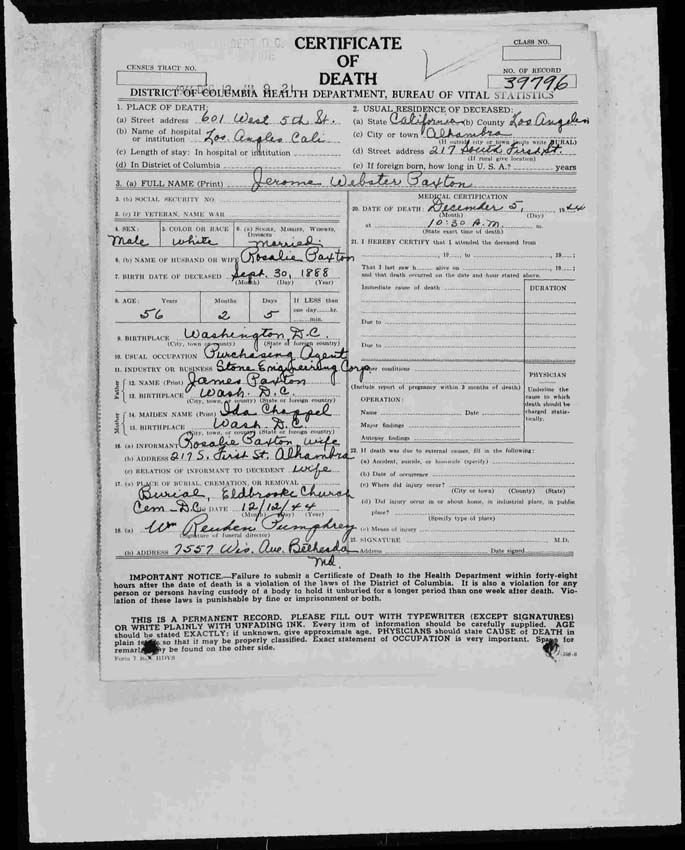 CERTIFICATE
OF
DEATH
CENSUS TRACT NO.
CLASS NO.
NO. OF RECORD
39796
DISTRICT OF COLUMBIA HEALTH DEPARTMENT, BUREAU OF VITAL STATISTICS
1. PLACE OF DEATH:
(a) Street address 601 West 5th St.
(b) Name of hospital
or institution Los Angles Cali
(c) Length of stay: In hospital or institution
(d) In District of Columbia
2. USUAL RESIDENCE OF DECEASED:
(a) State California (b) County Los Angeles
(c) City or town Alhambra
(If outside city or town limits write RURAL)
(d) Street address 217 South First St.
(If rural give location)
(e) If foreign born, how long in U. S. A.? years
3. (a) FULL NAME (Print) Jerome Webster Paxton
3. (b) SOCIAL SECURITY NO.
3. (c) IF VETERAN, NAME WAR
4. SEX: 5. COLOR OR RACE 6. (a) Single, Married, Widowed,
Divorced
Male White Married
6. (b) NAME OF HUSBAND OR WIFE Rosalie Paxton
7. BIRTH DATE OF DECEASED Sept. 30, 1888
(Month) (Day) (Year)
8. AGE: Years Months Days If LESS than
one day hr.
min.
56 2 5
9. BIRTHPLACE Washington, D.C.
(City, town or county) (State or foreign country)
10. USUAL OCCUPATION Purchasing Agent
11. INDUSTRY OR BUSINESS Stone Engineering Corp
Father
12. NAME (Print) James Paxton
13. BIRTHPLACE Wash. D.C.
(City, town, or county) (State or foreign country)
Mother
14. MAIDEN NAME (Print) Ida Chappel
15. BIRTHPLACE Wash. D.C.
(City, town, or county) (State or foreign country)
16. (a) INFORMANT Rosalie Paxton Wife
(b) ADDRESS 217 S. First St. Alhambra
(c) RELATION OF INFORMANT TO DECEDENT Wife
17. (a) PLACE OF BURIAL, CREMATION, OR REMOVAL
Burial, Eldbrooke Church
Cem - D.C. DATE 12/12/44
(Month) (Day) (Year)
18. (a) Wm Reuben Pumphrey
(Signature of funeral director)
(b) ADDRESS 7557 Wis. Ave. Bethesda
Md.
MEDICAL CERTIFICATION
20. DATE OF DEATH: December 5, 1944
(Month) (Day)
at 10:30 A.M. m.
(State exact time of death)
21. I HEREBY CERTIFY that I attended the deceased from
, 19 to , 19 ;
That I last saw h alive on , 19 ;
and that death occurred on the date and hour stated above.
Immediate cause of death DURATION
Due to
Due to
Other conditions
(Include report of pregnancy within 3 months of death)
OPERATION:
Name Date
Major findings
Autopsy findings
PHYSICIAN
Underline the
cause to which
death should be
charged statis-
tically.
22. If death was due to external causes, fill in the following:
(a) Accident, suicide, or homicide (specify)
(b) Date of occurrence
(c) Where did injury occur?
(City or town) (County) (State)
(d) Did injury occur in or about home, in industrial place, in public
place?
(Specify type of place)
(e) Means of injury
23. SIGNATURE M.D.
Address Date signed
IMPORTANT NOTICE.—Failure to submit a Certificate of Death to the Health Department within forty-eight
hours after the date of death is a violation of the laws of the District of Columbia. It is also a violation for any
person or persons having custody of a body to hold it unburied for a longer period than one week after death. Vio-
lation of these laws is punishable by fine or imprisonment or both.
THIS IS A PERMANENT RECORD. PLEASE FILL OUT WITH TYPEWRITER (EXCEPT SIGNATURES)
OR WRITE PLAINLY WITH UNFADING INK. Every item of information should be carefully supplied. AGE
should be stated EXACTLY; if unknown, give approximate age. PHYSICIANS should state CAUSE of DEATH in
plain terms, so that it may be properly classified. Exact statement of OCCUPATION is very important. Space for
remarks may be found on the other side.
Form 7 HDVS